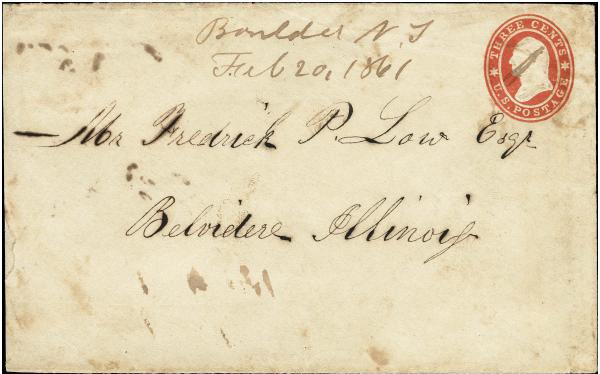 Boulder N T
Feb 20, 1861
THREE CENTS
U.S. POSTAGE
Mr Fredrick P. Low Esqr
Belvidere Illinois